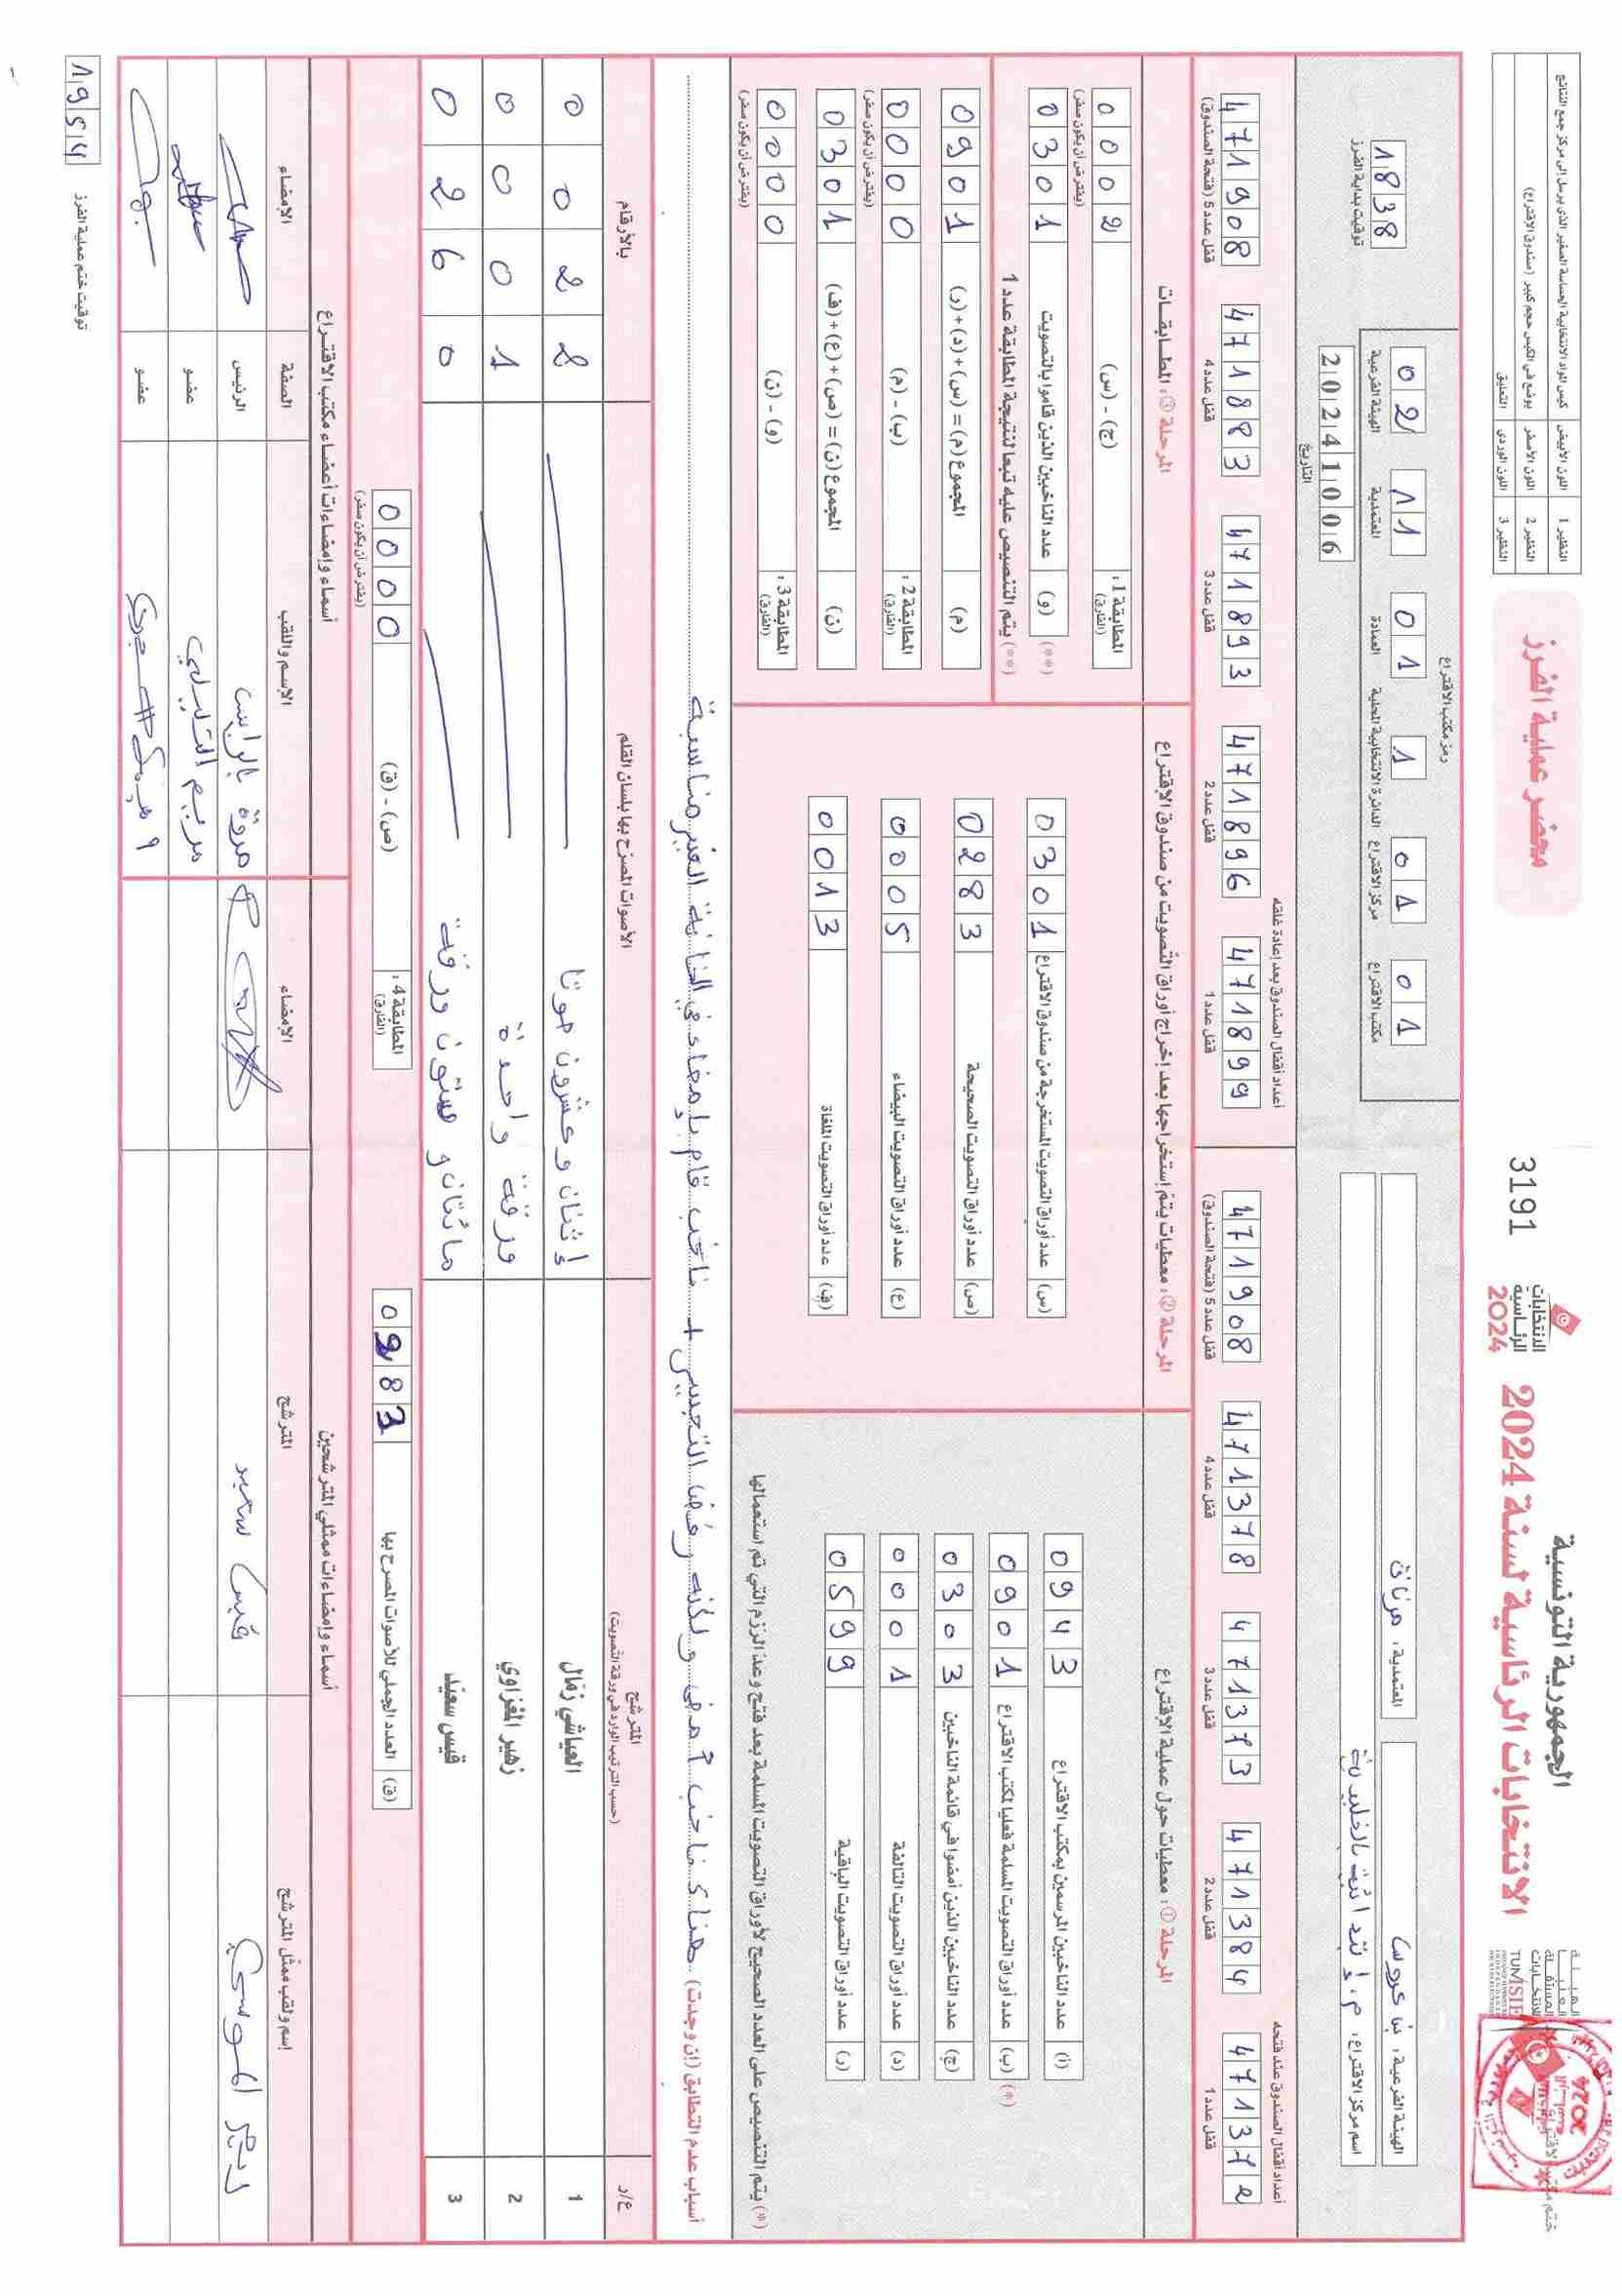 الجمهورية التونسية
الانتخابات الرئاسية لسنة 2024
الانتخابات
الرئاسية
2024
3191
محضر عملية الفرز
النظير 1 اللون الأبيض كيس المواد الانتخابية الحساسة الصغير الذي يرسل إلى مركز جمع النتائج
النظير 2 اللون الأصفر يوضع في الكيس حجم كبير (صندوق الاقتراع)
النظير 3 اللون الوردي التعليق
الهيئة الفرعية: بن عروس
المعتمدية: مرناق
اسم مركز الاقتراع:
رمز مكتب الاقتراع
01 مكتب الاقتراع
01 مركز الاقتراع
1 الدائرة الانتخابية المحلية
01 العمادة
11 المعتمدية
02 الهيئة الفرعية
20241006
التاريخ
1838
توقيت بداية الفرز
أعداد أقفال الصندوق عند فتحه
471372 قفل عدد 1
471384 قفل عدد 2
471373 قفل عدد 3
471378 قفل عدد 4
471908 قفل عدد 5 (فتحة الصندوق)
أعداد أقفال الصندوق بعد إعادة غلقه
471899 قفل عدد 1
471896 قفل عدد 2
471893 قفل عدد 3
471883 قفل عدد 4
471908 قفل عدد 5 (فتحة الصندوق)
المرحلة ①: معطيات حول عملية الاقتراع
(أ) عدد الناخبين المرسمين بمكتب الاقتراع 0943
(ب) (*) عدد أوراق التصويت المسلمة فعليا لمكتب الاقتراع 0901
(ج) عدد الناخبين الذين أمضوا في قائمة الناخبين 0303
(د) عدد أوراق التصويت التالفة 0001
(ر) عدد أوراق التصويت الباقية 0599
(*) يتم التنصيص على العدد الصحيح لأوراق التصويت المسلمة بعد فتح وعد الرزم التي تم استعمالها
المرحلة ②: معطيات يتم إستخراجها بعد إخراج أوراق التصويت من صندوق الاقتراع
(س) عدد أوراق التصويت المستخرجة من صندوق الاقتراع 0301
(ص) عدد أوراق التصويت الصحيحة 0283
(ع) عدد أوراق التصويت البيضاء 0005
(ف) عدد أوراق التصويت الملغاة 0013
المرحلة ③: المطابقات
المطابقة 1: (الفارق) (ج) - (س) 0002
(يفترض أن يكون صفر)
(**) (و) عدد الناخبين الذين قاموا بالتصويت 0301
(**) يتم التنصيص عليه تبعا لنتيجة المطابقة عدد 1
(م) المجموع (م) = (س)+(د)+(ر) 0901
المطابقة 2: (الفارق) (ب) - (م) 0000
(يفترض أن يكون صفر)
(ن) المجموع (ن) = (ص)+(ع)+(ف) 0301
المطابقة 3: (الفارق) (و) - (ن) 0000
(يفترض أن يكون صفر)
أسباب عدم التطابق (إن وجدت) هناك ناخب أمضى ولكنه رفض التحبير + ناخب قام بإمضاء في الخانة الغير مناسبة
ع/ر المترشح الأصوات المصرح بها بلسان القلم بالأرقام
(حسب الترتيب الوارد في ورقة التصويت)
1 العياشي زمّال إثنان وعشرون صوتا 0022
2 زهير المغزاوي ورقة واحدة 0001
3 قيس سعيّد مائتان و ستّون ورقة 0260
(ق) العدد الجملي للأصوات المصرح بها 0283
المطابقة 4: (الفارق) (ص) - (ق) 0000
(يفترض أن يكون صفر)
أسماء وإمضاءات ممثلي المترشحين
إسم ولقب ممثل المترشح المترشح الإمضاء
قيس سعيد
أسماء وإمضاءات أعضاء مكتب الاقتراع
الإسم واللقب الصفة الإمضاء
مروة الرئيس
مريم عضو
عضو
1954 توقيت ختم عملية الفرز